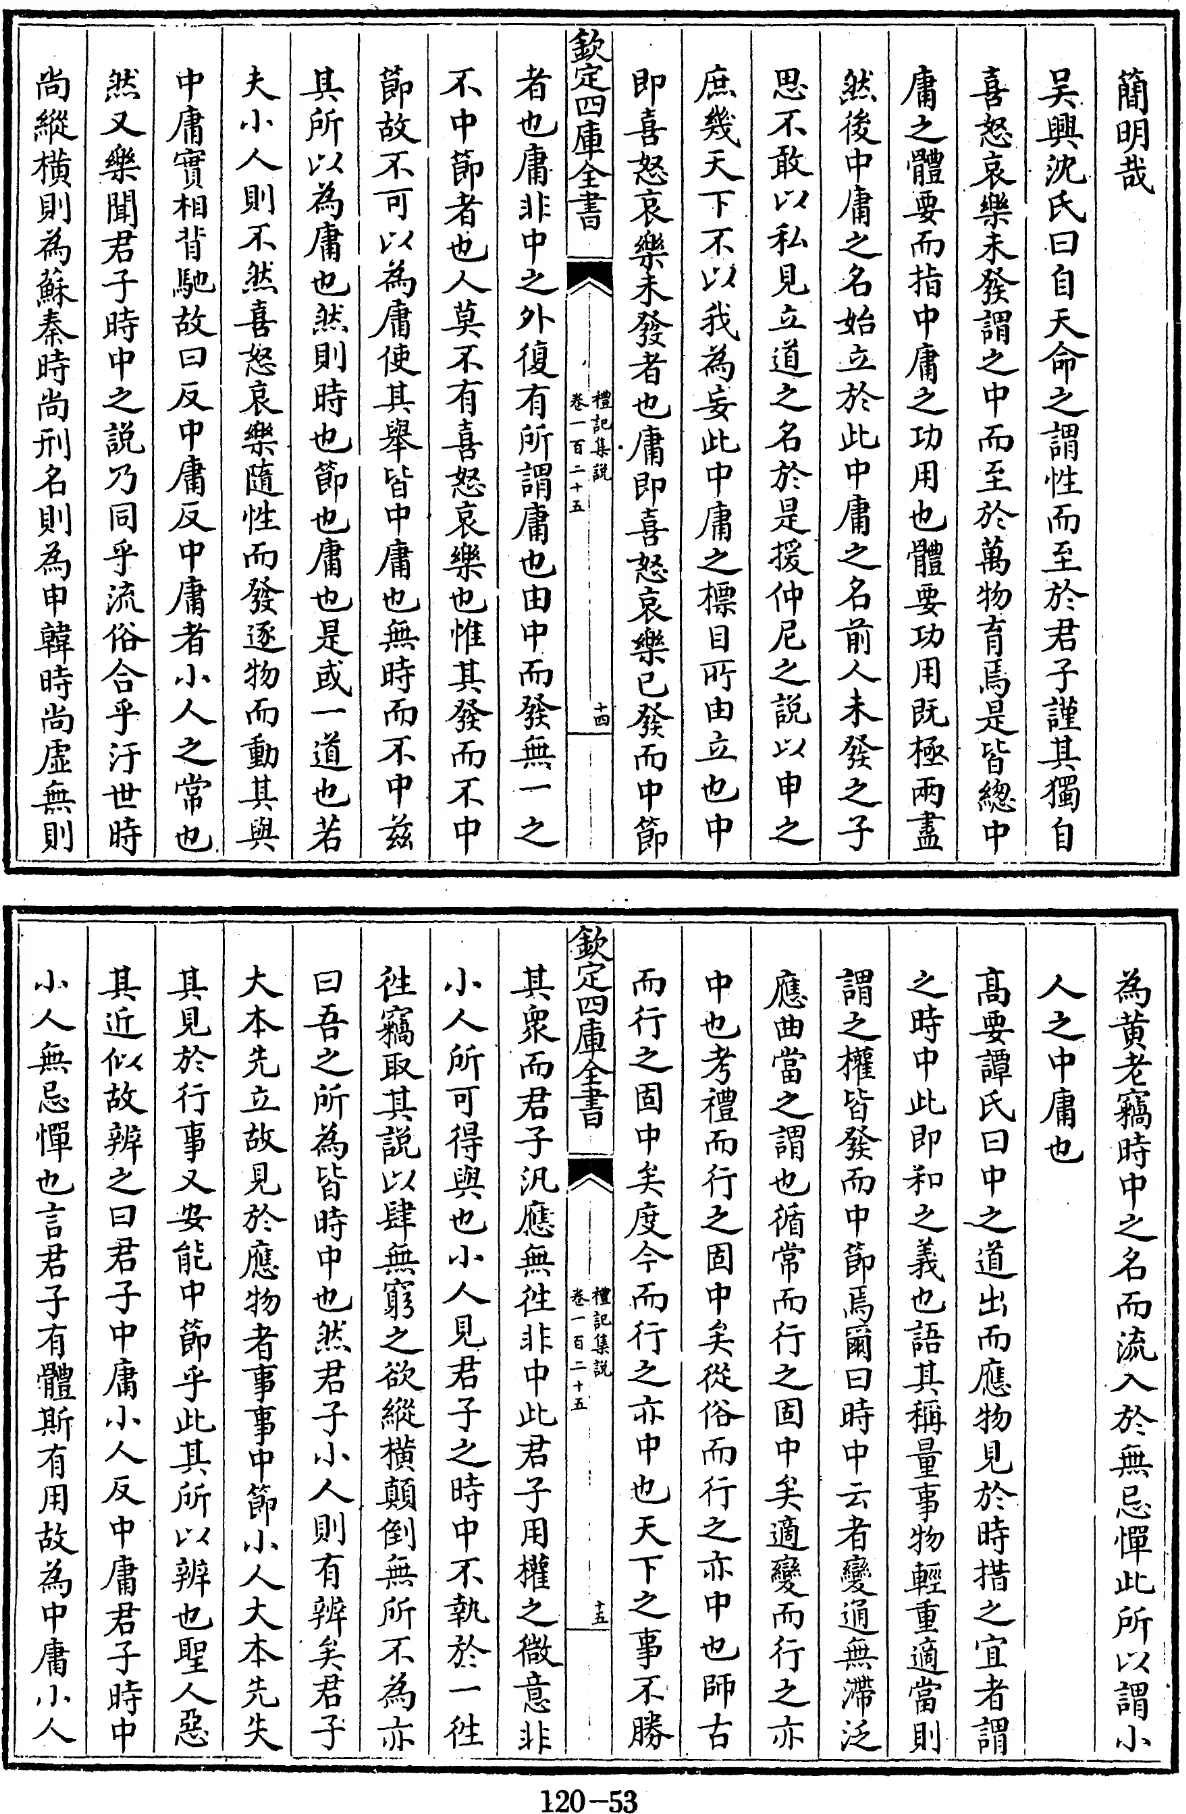 蕳明哉
吴興沈氏曰自天命之謂性而至於君子謹其獨自
喜怒哀樂未發謂之中而至於萬物育焉是皆總中
庸之體要而指中庸之功用也體要功用既極兩盡
然後中庸之名始立於此中庸之名前人未發之子
思不敢以私見立道之名於是援仲尼之說以申之
庶幾天下不以我為妄此中庸之標目所由立也中
即喜怒哀樂未發者也庸即喜怒哀樂已發而中節
欽定四庫全書
禮記集說
卷一百二十五
十四
者也庸非中之外復有所謂庸也由中而發無一之
不中節者也人莫不有喜怒哀樂也惟其發而不中
節故不可以為庸使其舉皆中庸也無時而不中兹
其所以為庸也然則時也節也庸也是或一道也若
夫小人則不然喜怒哀樂隨性而發逐物而動其與
中庸實相背馳故曰反中庸反中庸者小人之常也
然又樂聞君子時中之說乃同乎流俗合乎汙世時
尚縱橫則為蘇秦時尚刑名則為申韓時尚虛無則
為黃老竊時中之名而流入於無忌憚此所以謂小
人之中庸也
髙要譚氏曰中之道出而應物見於時措之宜者謂
之時中此即和之義也語其稱量事物輕重適當則
謂之權皆發而中節焉爾曰時中云者變通無滯泛
應曲當之謂也循常而行之固中矣適變而行之亦
中也考禮而行之固中矣從俗而行之亦中也師古
而行之固中矣度今而行之亦中也天下之事不勝
欽定四庫全書
禮記集說
卷一百二十五
十五
其衆而君子汎應無徃非中此君子用權之微意非
小人所可得與也小人見君子之時中不執於一徃
徃竊取其說以肆無窮之欲縱橫顛倒無所不為亦
曰吾之所為皆時中也然君子小人則有辨矣君子
大本先立故見於應物者事事中節小人大本先失
其見於行事又安能中節乎此其所以辨也聖人惡
其近似故辨之曰君子中庸小人反中庸君子時中
小人無忌憚也言君子有體斯有用故為中庸小人
120-53